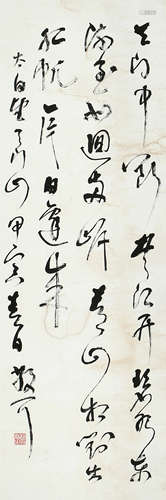 天門中斷楚江開碧水東
流至此迴兩岸青山相對出
孤帆一片日邊來
太白望天門山甲寅春日散耳